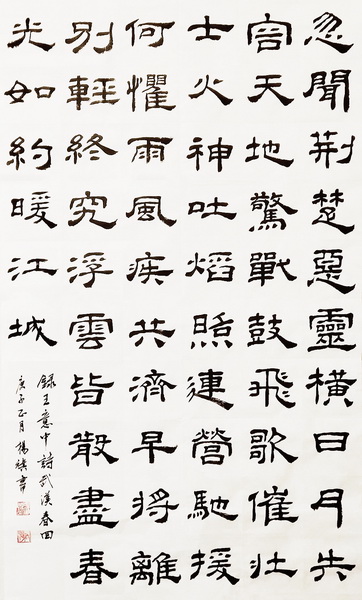 忽聞荊楚惡靈橫日月失
容天地驚戰鼓飛歌催壮
士火神吐焰照連營馳援
何懼雨風疾共濟早將離
別輕終究浮雲皆散盡春
光如約暖江城
錄王意中詩武漢春回
庚子正月楊